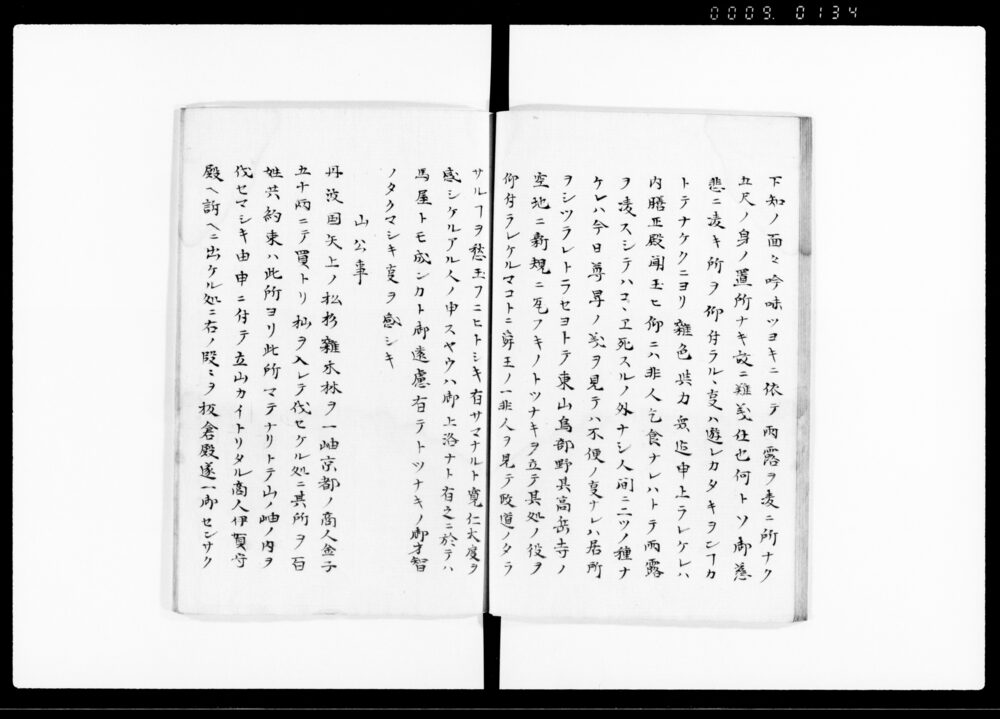 0009. 0134
下知ノ面々吟味ツヨキニ依テ雨露ヲ凌ニ所ナク
五尺ノ身ノ置所ナキ故ニ難義仕也何トソ御慈
悲ニ凌キ所ヲ仰付ラルヽ事ハ遊レカタキヲン
トテナケクニヨリ雑色共力無追申上ラレケレハ
内膳正殿聞玉ヒ仰ニハ非人乞食ナレハトテ雨露
ヲ凌スシテハコヽヱ死スルノ外ナシ人间ニ二ツノ種ナ
ケレハ今日尊卑ノ義ヲ見テハ不便ノ事ナレハ居所
ヲシツラレトラセヨトテ東山鳥部野其高岳寺ノ
空地ニ新規ニ瓦フキノトツナキヲ立テ其処ノ役ヲ
仰付ラレケルマコトニ舜王ノ一非人ヲ見テ政道ノタラ
サルヿヲ愁玉フニヒトシキ有サマナルト寛仁大度ヲ
感シケルアル人ノ申スヤウハ御上洛ナト有之ニ於テハ
馬屋トモ成ンカト御遠慮有テトツナキノ御才智
ノタクマシキ事ヲ感シキ
山公事
丹波国矢上ノ松杉雑木林ヲ一岫京都ノ商人金子
五十両ニテ買トリ杣ヲ入レテ伐セケル処ニ其所ヲ百
姓共約束ハ此所ヨリ此所マテナリトテ山岫ノ内ヲ
伐セマシキ由申ニ付テ立山カイトリタル商人伊賀守
殿ヘ訴ヘニ出ケル処ニ右ノ段ミヲ板倉殿遂一御センサク